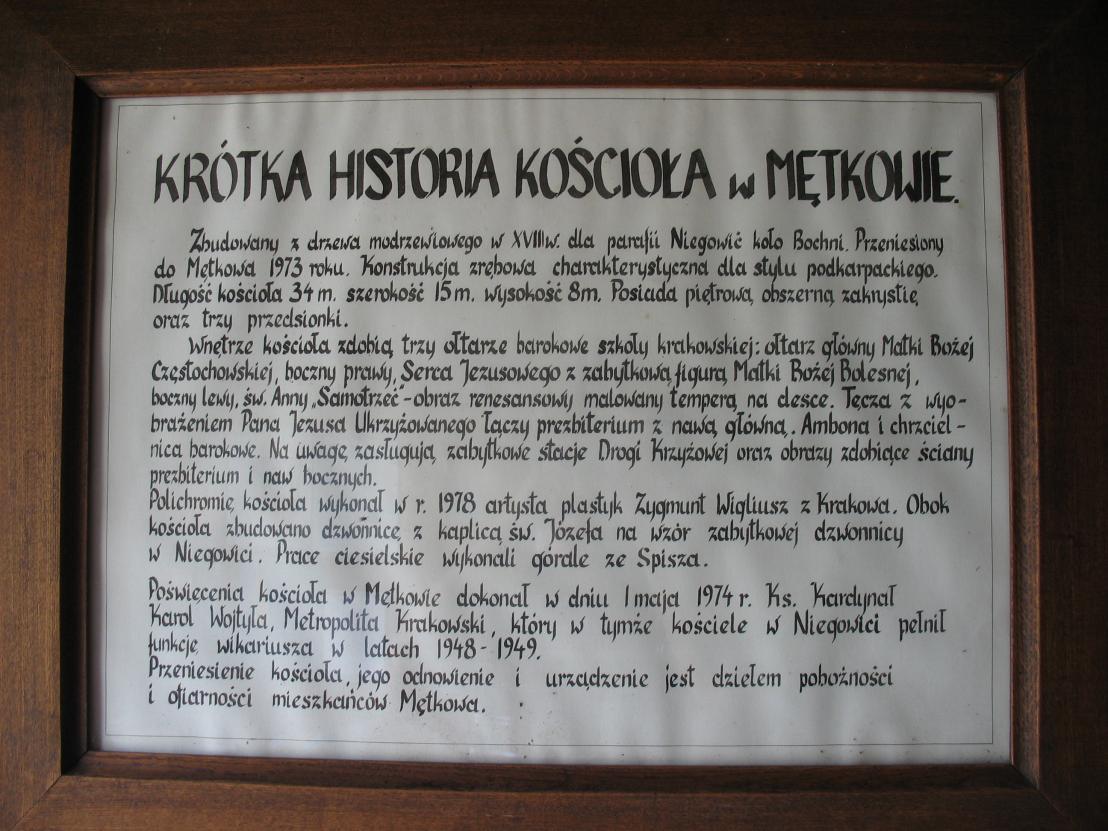 KRÓTKA HISTORIA KOŚCIOŁA w MĘTKOWIE.
Zbudowany z drzewa modrzewiowego w XVIII w. dla parafii Niegowić koło Bochni. Przeniesiony
do Mętkowa 1973 roku. Konstrukcja zrębowa charakterystyczna dla stylu podkarpackiego.
Długość kościoła 34 m. szerokość 15 m. wysokość 8 m. Posiada piętrową, obszerną zakrystię
oraz trzy przedsionki.
Wnętrze kościoła zdobią trzy ołtarze barokowe szkoły krakowskiej: ołtarz główny Matki Bożej
Częstochowskiej, boczny prawy, Serca Jezusowego z zabytkową figurą Matki Bożej Bolesnej,
boczny lewy, św. Anny „Samotrzeć" - obraz renesansowy malowany temperą na desce. Tęcza z wyo-
brażeniem Pana Jezusa Ukrzyżowanego łączy prezbiterium z nawą główną. Ambona i chrzciel-
nica barokowe. Na uwagę zasługują zabytkowe stacje Drogi Krzyżowej oraz obrazy zdobiące ściany
prezbiterium i naw bocznych.
Polichromię kościoła wykonał w r. 1978 artysta plastyk Zygmunt Wigliusz z Krakowa. Obok
kościoła zbudowano dzwonnicę z kaplicą św. Józefa na wzór zabytkowej dzwonnicy
w Niegowici. Prace ciesielskie wykonali górale ze Spisza.
Poświęcenia kościoła w Mętkowie dokonał w dniu 1 maja 1974 r. Ks. Kardynał
Karol Wojtyła, Metropolita Krakowski, który w tymże kościele w Niegowici pełnił
funkcję wikariusza w latach 1948 - 1949.
Przeniesienie kościoła, jego odnowienie i urządzenie jest dziełem pobożności
i ofiarności mieszkańców Mętkowa.